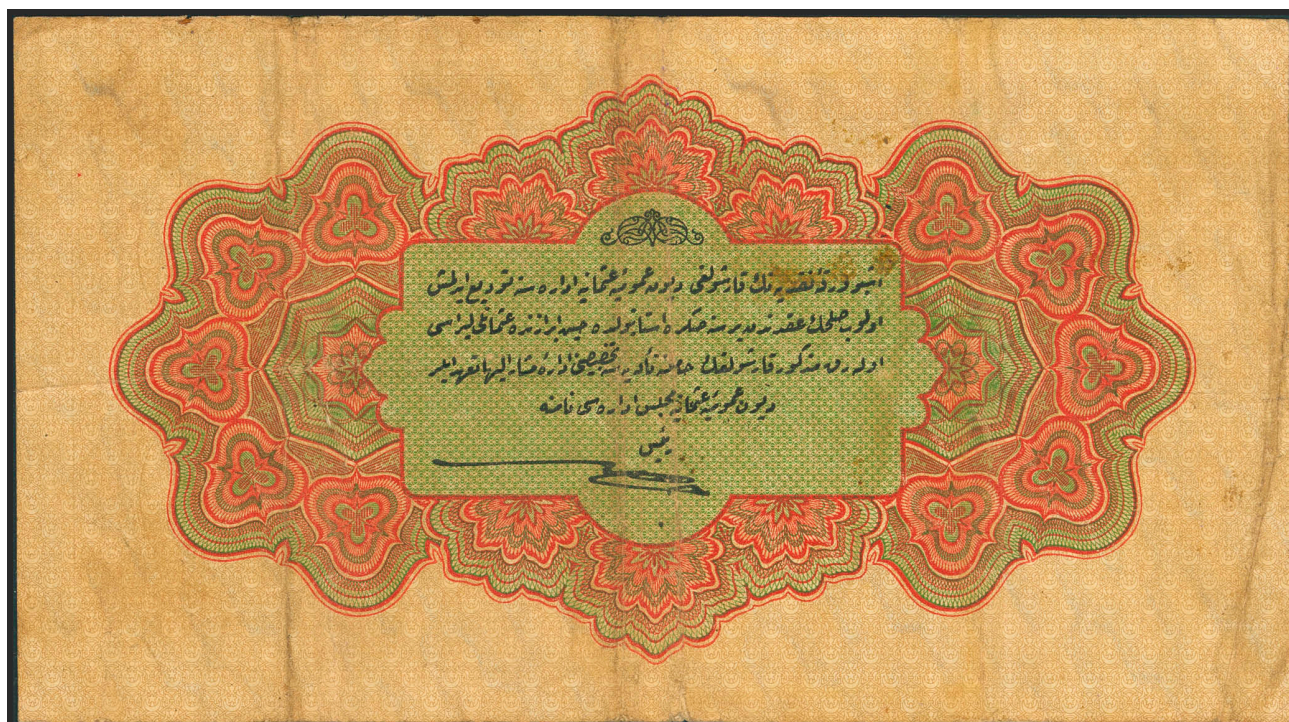 اشبو ورقۀ نقدیه نك قارشولغی دیون عمومیۀ عثمانیه اداره سنه تودیع ایدلمش
اولوب صلحك عقدندن بر سنه صكره استانبولده عثمانلی لیراسی
اوله رق مذكور قارشولغك حامله تأدیه سنه تخصیصنی ادارۀ مشار الیها تعهد ایلر
دیون عمومیۀ عثمانیه مجلس اداره سی نامنه
رئیس